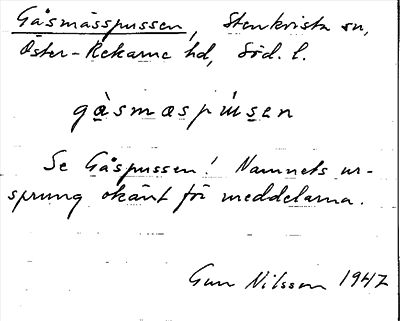 Gåsmässpussen, Stenkvista sn,
Öster-Rekarne hd, Söd. l.
gàsmæspúsen
Se Gåspussen! Namnets ur-
sprung okänt för meddelarna.
Gun Nilsson 1947